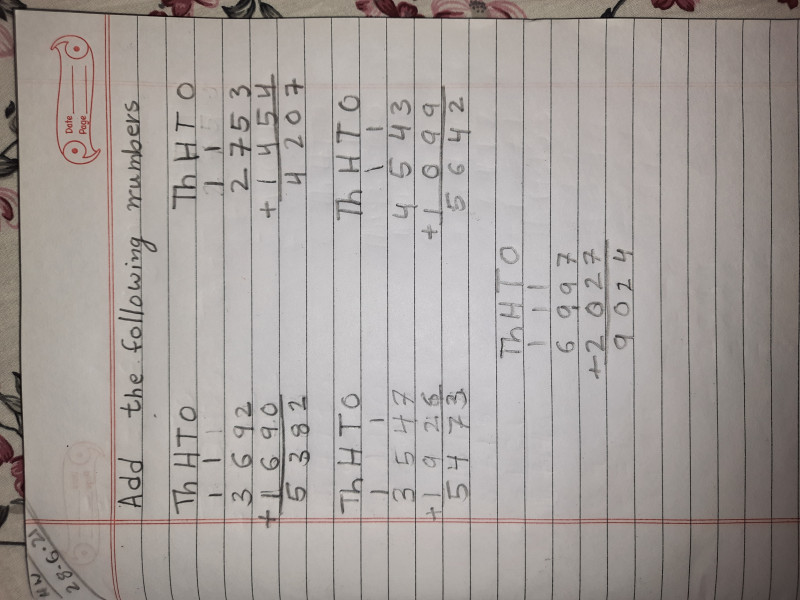 HW
28-6-21
Date
Page
Add the following numbers
Th H T O Th H T O
1 1 1 1
3 6 9 2 2 7 5 3
+1 6 9 0 +1 4 5 4
5 3 8 2 4 2 0 7
Th H T O Th H T O
1 1 1 1
3 5 4 7 4 5 4 3
+1 9 2 6 +1 0 9 9
5 4 7 3 5 6 4 2
Th H T O
1 1 1
6 9 9 7
+2 0 2 7
9 0 2 4